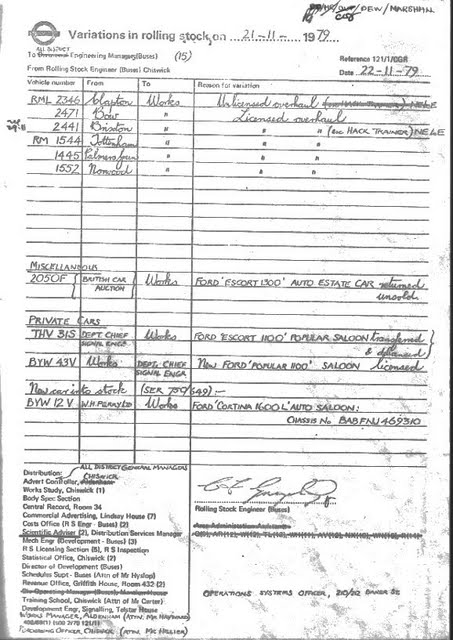 DEW/MARSHALL
Variations in rolling stock, on 21-11- 1979
ALL DISTRICT
To Engineering Managers (Buses) (15)
From Rolling Stock Engineer (Buses) Chiswick
Reference 121/1/OGR
Date 22-11-79
Vehicle number From To Reason for variation
RML 2346 Clapton Works Unlicensed overhaul
2471 Bow " Licensed overhaul
2441 Brixton " " " (EX HACK TRAINER) NELE
RM 1544 Tottenham " " "
1445 Palmers Green " " "
1552 Norwood " " "
MISCELLANEOUS
2050F BRITISH CAR AUCTION Works FORD 'ESCORT 1300' AUTO ESTATE CAR returned unsold
PRIVATE CARS
THV 31S DEPT. CHIEF SIGNAL ENGR. Works FORD 'ESCORT 1100' POPULAR SALOON transferred & delicensed
BYW 43V Works DEPT. CHIEF SIGNAL ENGR New FORD 'POPULAR 1100' SALOON licensed
New car into stock (SER 750/649):-
BYW 12V W.H. PERRY LTD Works FORD 'CORTINA 1600L' AUTO SALOON:
CHASSIS No BABFNU 469310
Distribution: ALL DISTRICT GENERAL MANAGERS
CHISWICK
Advert Controller, Aldenham
Works Study, Chiswick (1)
Body Spec Section
Central Record, Room 34
Commercial Advertising, Lindsey House (7)
Costs Office (R S Engr - Buses) (2)
Scientific Adviser (2), Distribution Services Manager
Mech Engr (Development - Buses) (3)
R S Licensing Section (5), R S Inspection
Statistical Office, Chiswick (2)
Director of Development (Buses)
Schedules Supt - Buses (Attn of Mr Hyslop)
Revenue Office, Griffith House, Room 432 (2)
Training School, Chiswick (Attn of Mr Carter)
Development Engr, Signalling, Telstar House
WORKS MANAGER, ALDENHAM (ATTN. MR HAYWARD)
PURCHASING OFFICER, CHISWICK (ATTN. MR HELLIER)
Rolling Stock Engineer (Buses)
Area Administration Assistants
OPERATIONS SYSTEMS OFFICER, 210/02 BAKER ST